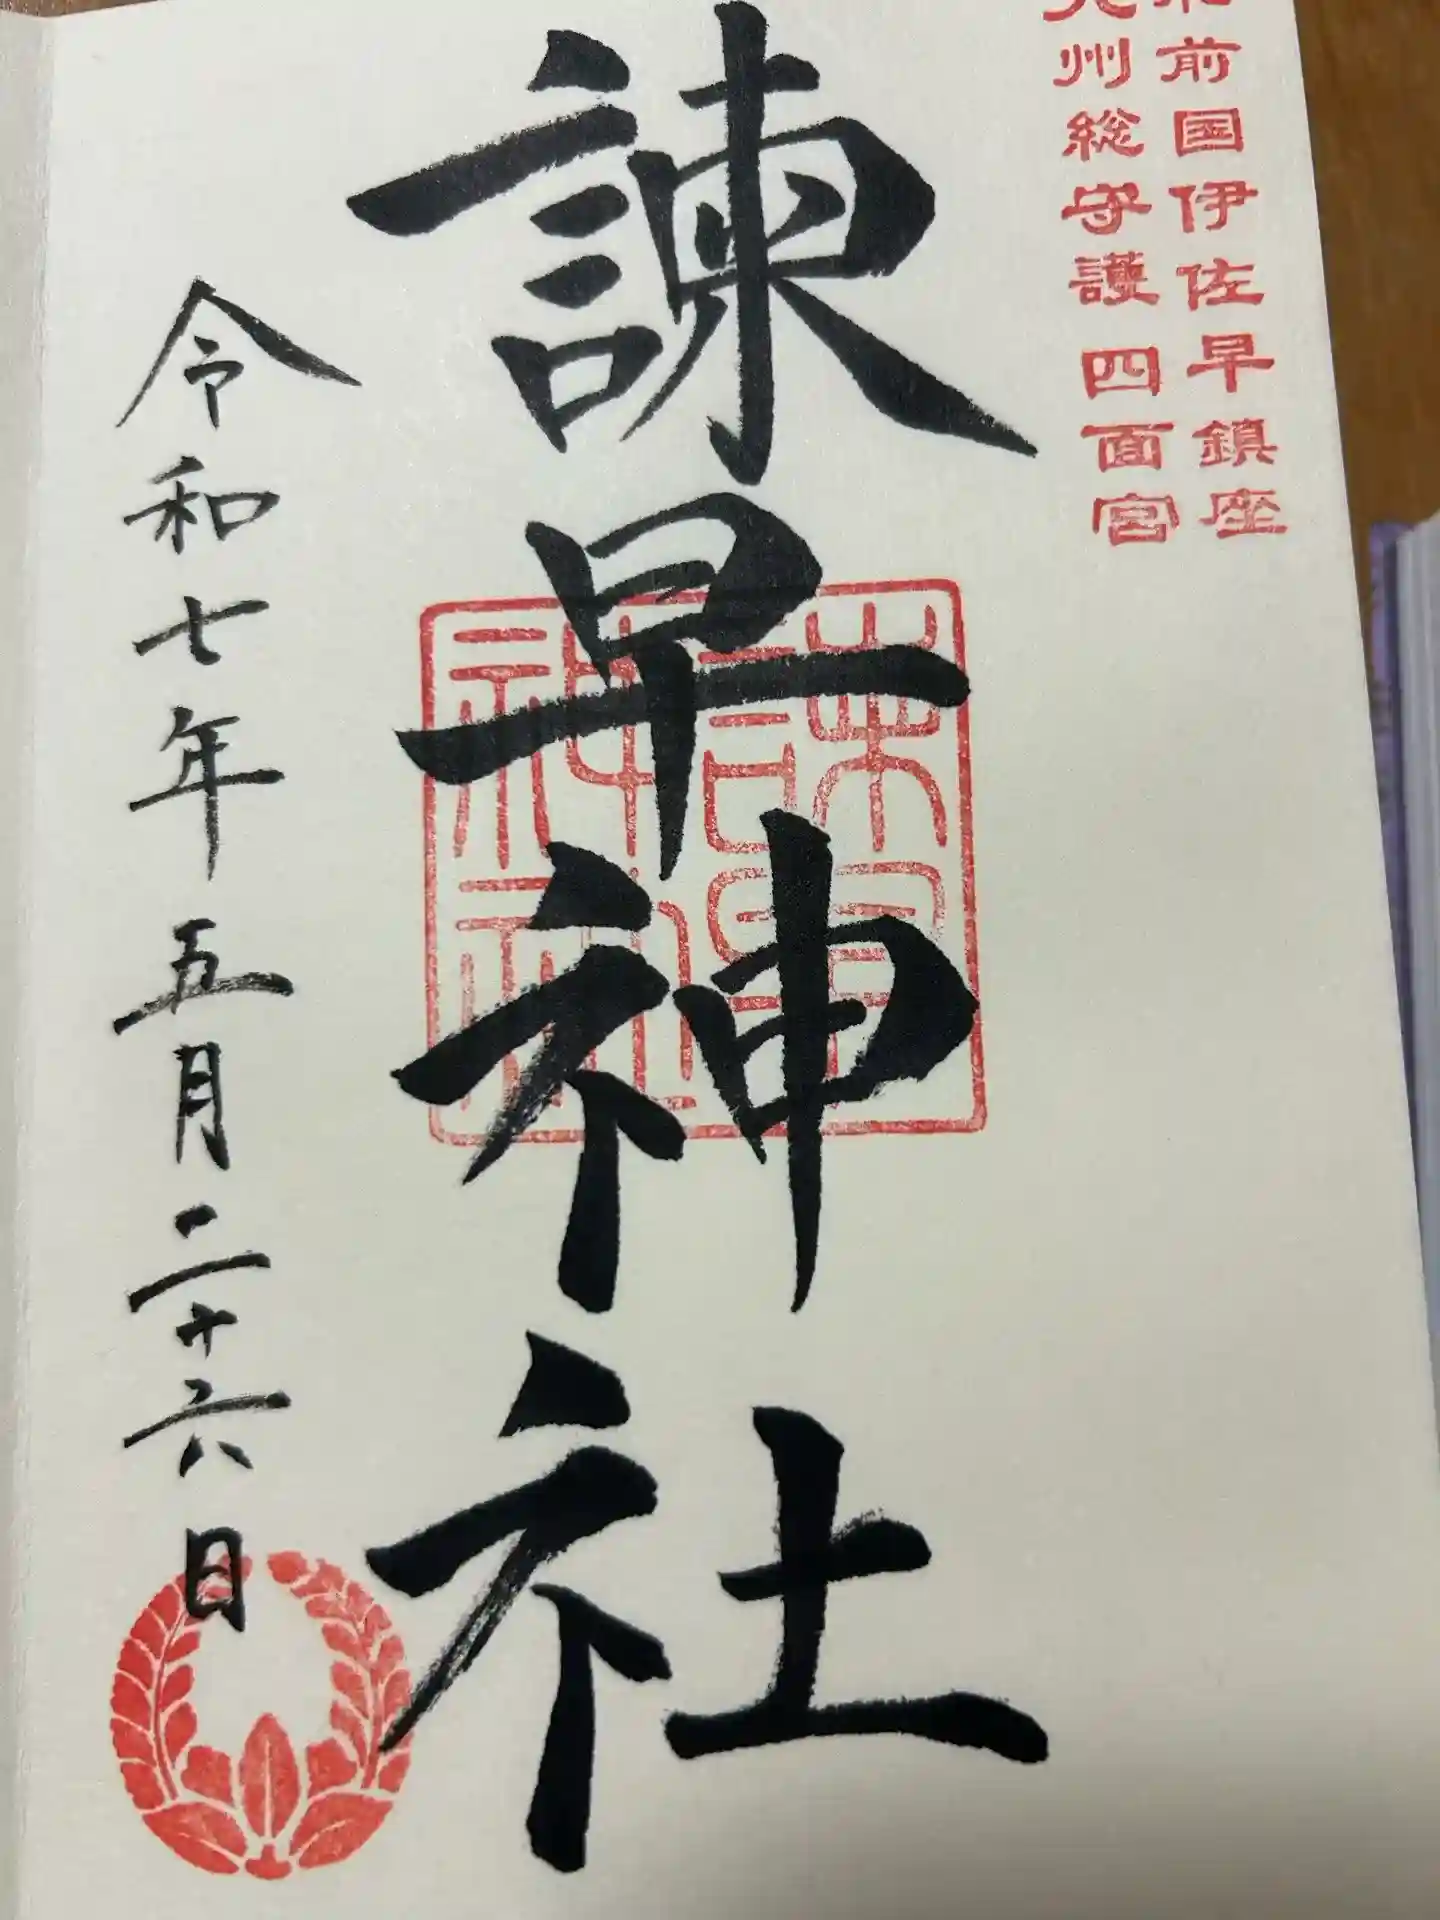 前国伊佐早鎮座
州総守護 四面宮
諫早神社
諫早神社
令和七年五月二十六日